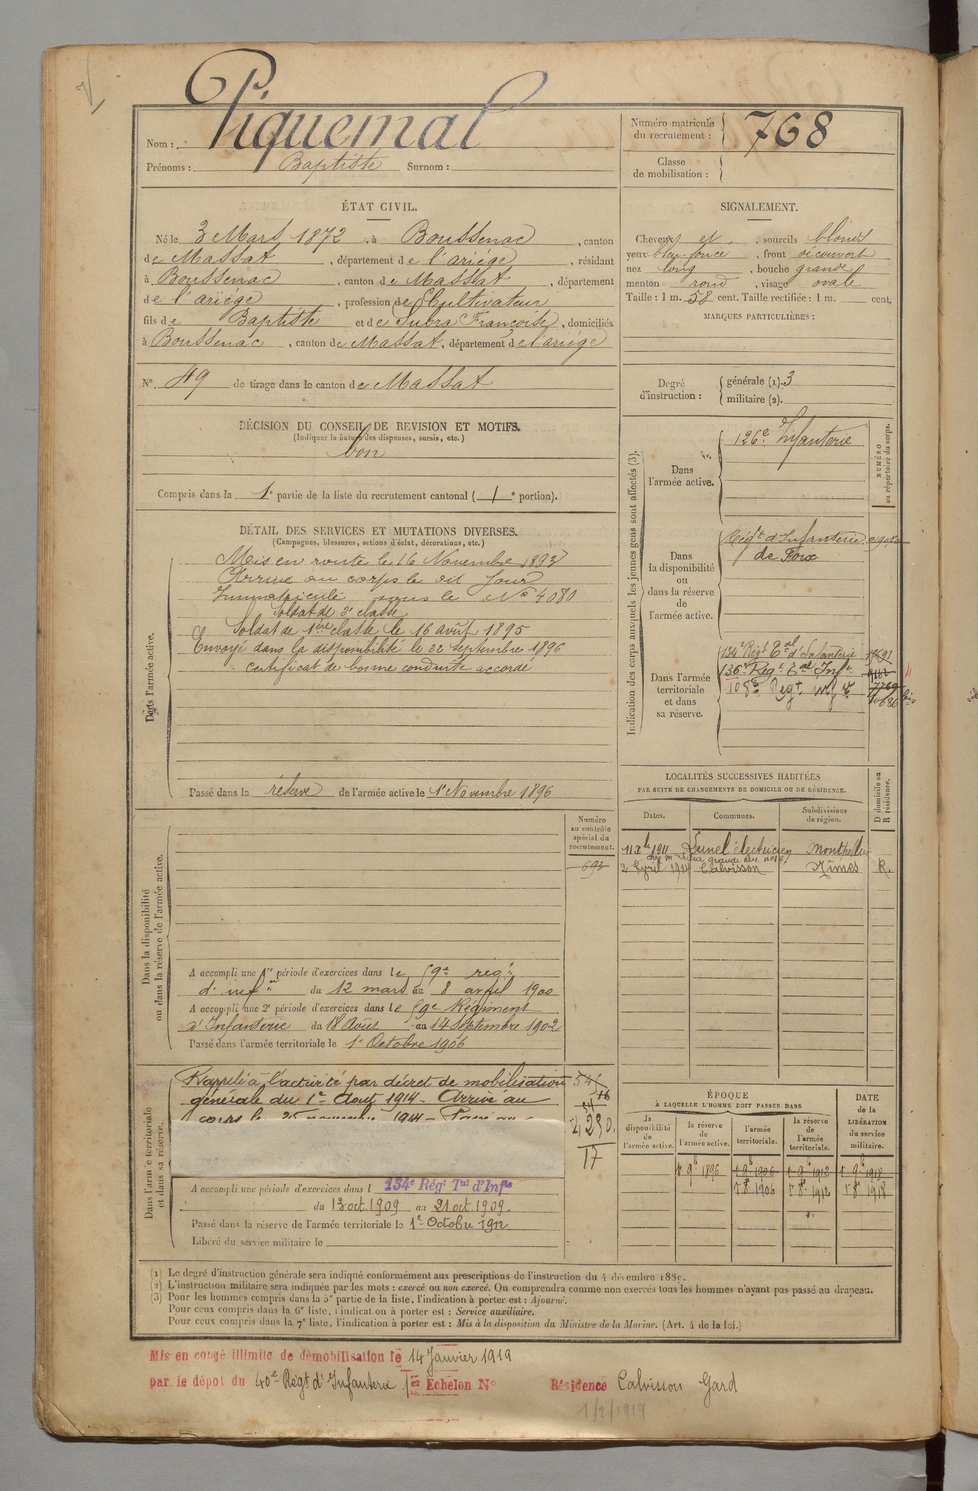 Piquemal
Nom :
Prénoms : Baptiste Surnom :
Numéro matricule du recrutement : 768
Classe de mobilisation :
ÉTAT CIVIL.
Né le 3 Mars 1872, à Boussenac, canton
de Massat, département de l'ariége, résidant
à Boussenac, canton de Massat, département
de l'ariége, profession de Cultivateur
fils de Baptiste et de Subra Françoise, domiciliés
à Boussenac, canton de Massat, département de l'ariége
N° 49 de tirage dans le canton de Massat
SIGNALEMENT.
Cheveux et, sourcils blond
yeux bleu foncé, front découvert
nez long, bouche grande
menton rond, visage ovale
Taille : 1 m. 58 cent. Taille rectifiée : 1 m. cent.
MARQUES PARTICULIÈRES :
Degré d'instruction : générale (1). 3
militaire (2).
DÉCISION DU CONSEIL DE REVISION ET MOTIFS.
(Indiquer la nature des dispenses, sursis, etc.)
bon
Compris dans la 1e partie de la liste du recrutement cantonal (1e portion).
DÉTAIL DES SERVICES ET MUTATIONS DIVERSES.
(Campagnes, blessures, actions d'éclat, décorations, etc.)
Dans l'armée active.
Mis en route le 16 Novembre 1893
Arrivé au corps le dit jour
Immatriculé sous le No 4080
Soldat de 2e classe
Soldat de 1ère classe le 16 août 1895
Envoyé dans la disponibilité le 22 septembre 1896
certificat de bonne conduite accordé
Passé dans la réserve de l'armée active le 1er Novembre 1896
Indication des corps auxquels les jeunes gens sont affectés (3).
NUMÉRO au répertoire du corps.
Dans l'armée active.
126e Infanterie
Dans la disponibilité ou dans la réserve de l'armée active.
Régt d'Infanterie
de Foix
Dans l'armée territoriale et dans sa réserve.
134e Régt Eal d'Infanterie
136e Régt Eal Infie
108e Régt
LOCALITÉS SUCCESSIVES HABITÉES
PAR SUITE DE CHANGEMENTS DE DOMICILE OU DE RÉSIDENCE.
Dates. Communes. Subdivisions de région. D domicile ou R résidence.
1911 Lunel électricien Montpellier
2 Avril 1914 Calvisson Nîmes R.
Dans la disponibilité ou dans la réserve de l'armée active.
Numéro au contrôle spécial du recrutement.
693
A accompli une 1re période d'exercices dans le 59e régt
d'infie du 12 mars au 8 avril 1900
A accompli une 2e période d'exercices dans le 59e Régiment
d'Infanterie du 18 Août au 14 septembre 1902
Passé dans l'armée territoriale le 1er Octobre 1906
Dans l'armée territoriale et dans sa réserve.
Rappelé à l'activité par décret de mobilisation
générale du 1er Aout 1914 - Arrivé au
corps le 25 novembre 1914 - Passé au
17
A accompli une période d'exercices dans l 134e Régt Tal d'Infie
du 13 oct. 1909 au 21 oct. 1909.
Passé dans la réserve de l'armée territoriale le 1er Octobre 1912
Libéré du service militaire le
ÉPOQUE
À LAQUELLE L'HOMME DOIT PASSER DANS
la disponibilité de l'armée active. la réserve de l'armée active. l'armée territoriale. la réserve de l'armée territoriale.
DATE de la LIBÉRATION du service militaire.
1 9b 1896 1 9b 1906 1 9b 1912 1 9b 1918
1 8b 1906 1 8b 1912 1 8b 1918
(1) Le degré d'instruction générale sera indiqué conformément aux prescriptions de l'instruction du 4 décembre 1889.
(2) L'instruction militaire sera indiquée par les mots : exercé ou non exercé. On comprendra comme non exercés tous les hommes n'ayant pas passé au drapeau.
(3) Pour les hommes compris dans la 5e partie de la liste, l'indication à porter est : Ajourné.
Pour ceux compris dans la 6e liste, l'indication à porter est : Service auxiliaire.
Pour ceux compris dans la 7e liste, l'indication à porter est : Mis à la disposition du Ministre de la Marine. (Art. 4 de la loi.)
Mis en congé illimité de démobilisation le 14 Janvier 1919
par le dépôt du 40e Régt d'Infanterie 1er Echelon N° Résidence Calvisson Gard
1/2/1919